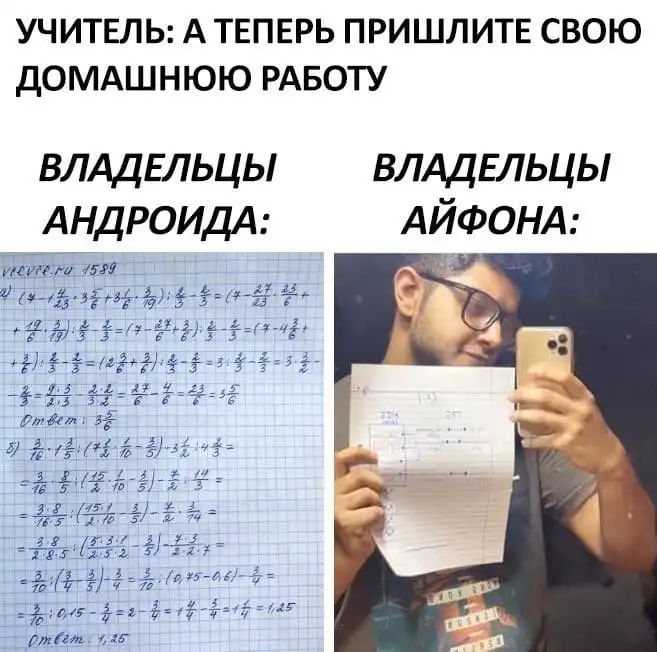 УЧИТЕЛЬ: А ТЕПЕРЬ ПРИШЛИТЕ СВОЮ
ДОМАШНЮЮ РАБОТУ
ВЛАДЕЛЬЦЫ
АНДРОИДА:
ВЛАДЕЛЬЦЫ
АЙФОНА:
1589
а) (7 - 1 4/23 · 3 5/6 + 3 1/6 · 3/19) : 2/3 - 2/3 = (7 - 27/23 · 23/6 +
+ 19/6 · 3/19) : 2/3 - 2/3 = (7 - 27/6 + 3/6) : 2/3 - 2/3 = (7 - 4 3/6 +
+ 3/6) : 2/3 - 2/3 = (2 3/6 + 3/6) : 2/3 - 2/3 = 3 : 2/3 - 2/3 = 3 · 3/2 -
- 2/3 = 9·3/2·3 - 2·2/3·2 = 27/6 - 4/6 = 23/6 = 3 5/6
Ответ: 3 5/6
б) 3/16 · 1 3/5 : (7 1/2 · 1/10 - 3/5) - 3 1/2 : 4 2/3 =
= 3/16 · 8/5 : (15/2 · 1/10 - 3/5) - 7/2 : 14/3 =
= 3·8/16·5 : (15·1/2·10 - 3/5) - 7/2 · 3/14 =
= 3·8/2·8·5 : (5·3·1/2·5·2 - 3/5) - 7·3/2·2·7 =
= 3/10 : (3/4 - 3/5) - 3/4 = 3/10 : (0,75 - 0,6) - 3/4 =
= 3/10 : 0,15 - 3/4 = 2 - 3/4 = 1 4/4 - 3/4 = 1 1/4 = 1,25
Ответ: 1,25